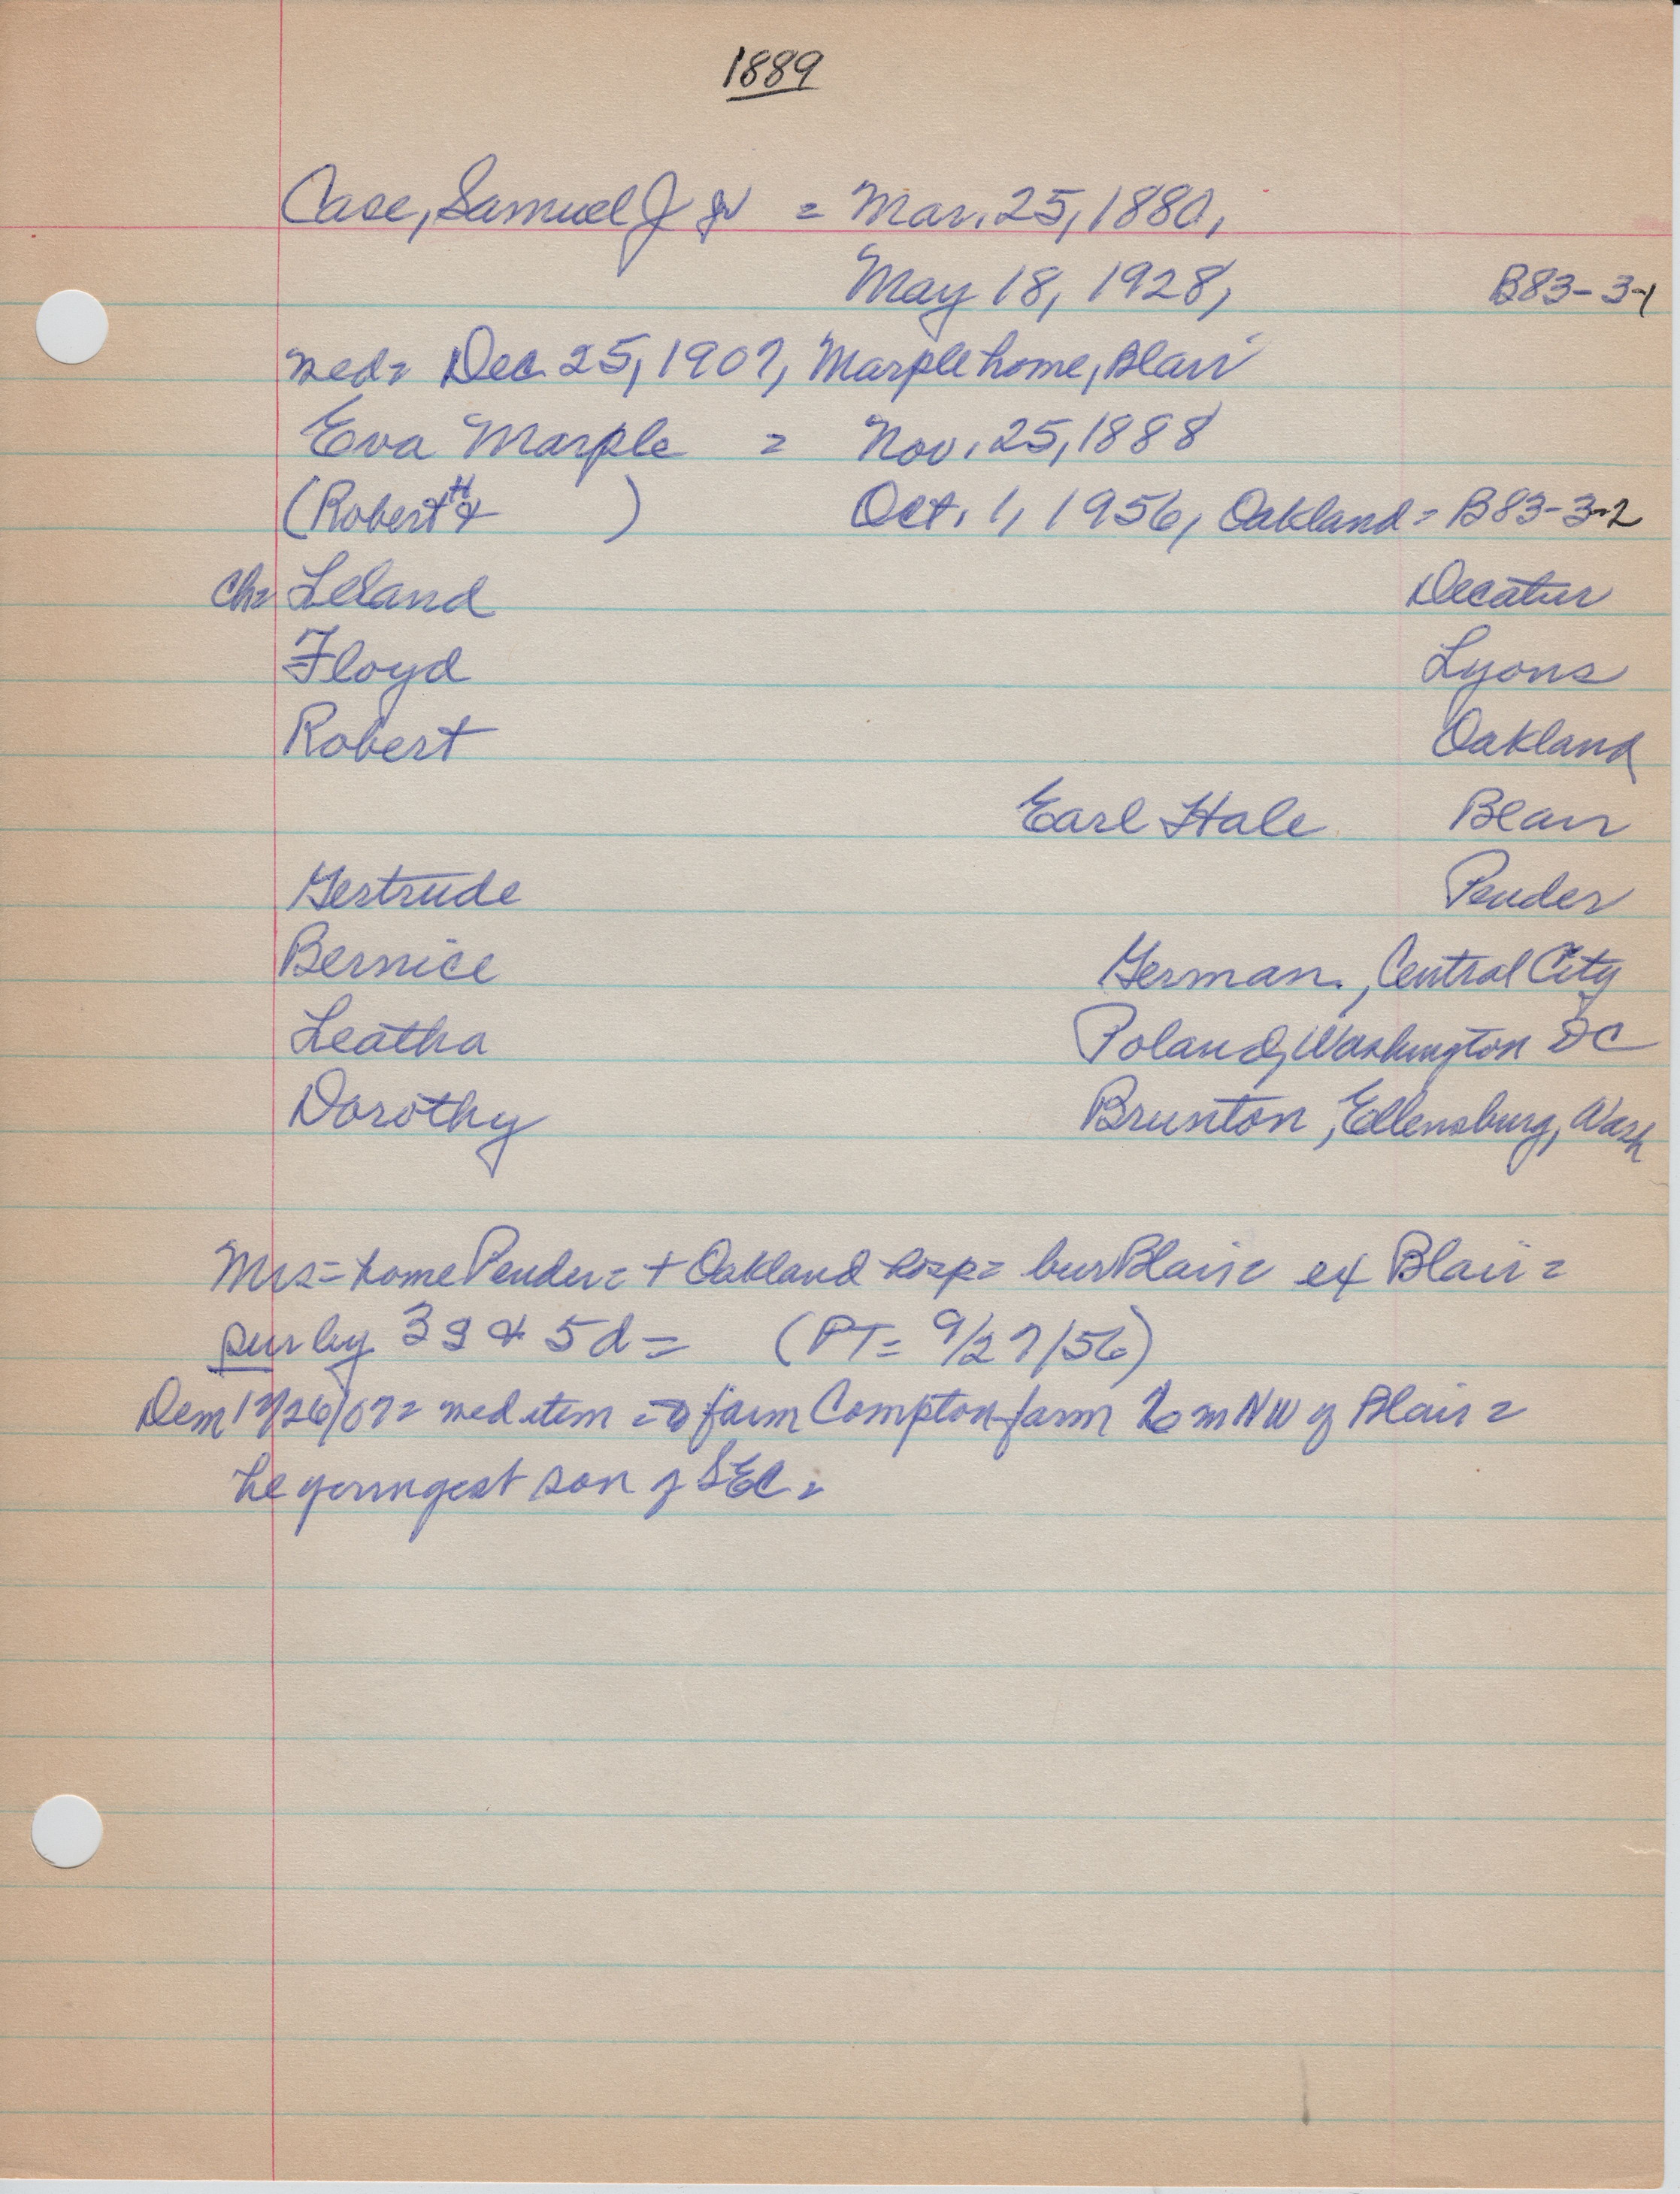 1889
Case, Samuel J Jr = Mar. 25, 1880,
May 18, 1928, B83-3-1
wed= Dec. 25, 1907, Marple home, Blair
Eva Marple = Nov. 25, 1888
(Robert H & ) Oct. 1, 1956, Oakland = B83-3-2
Ch= Leland Decatur
Floyd Lyons
Robert Oakland
Earl Hale Blair
Gertrude Pender
Bernice German, Central City
Leatha Poland, Washington DC
Dorothy Brunton, Ellensburg, Wash
Mrs = home Pender = + Oakland hosp = bur Blair = ex Blair =
sur by 3 s & 5 d = (PT = 9/27/56)
Dem 12/26/07 = wed item = to farm Compton farm m NW of Blair =
he youngest son of SEC =